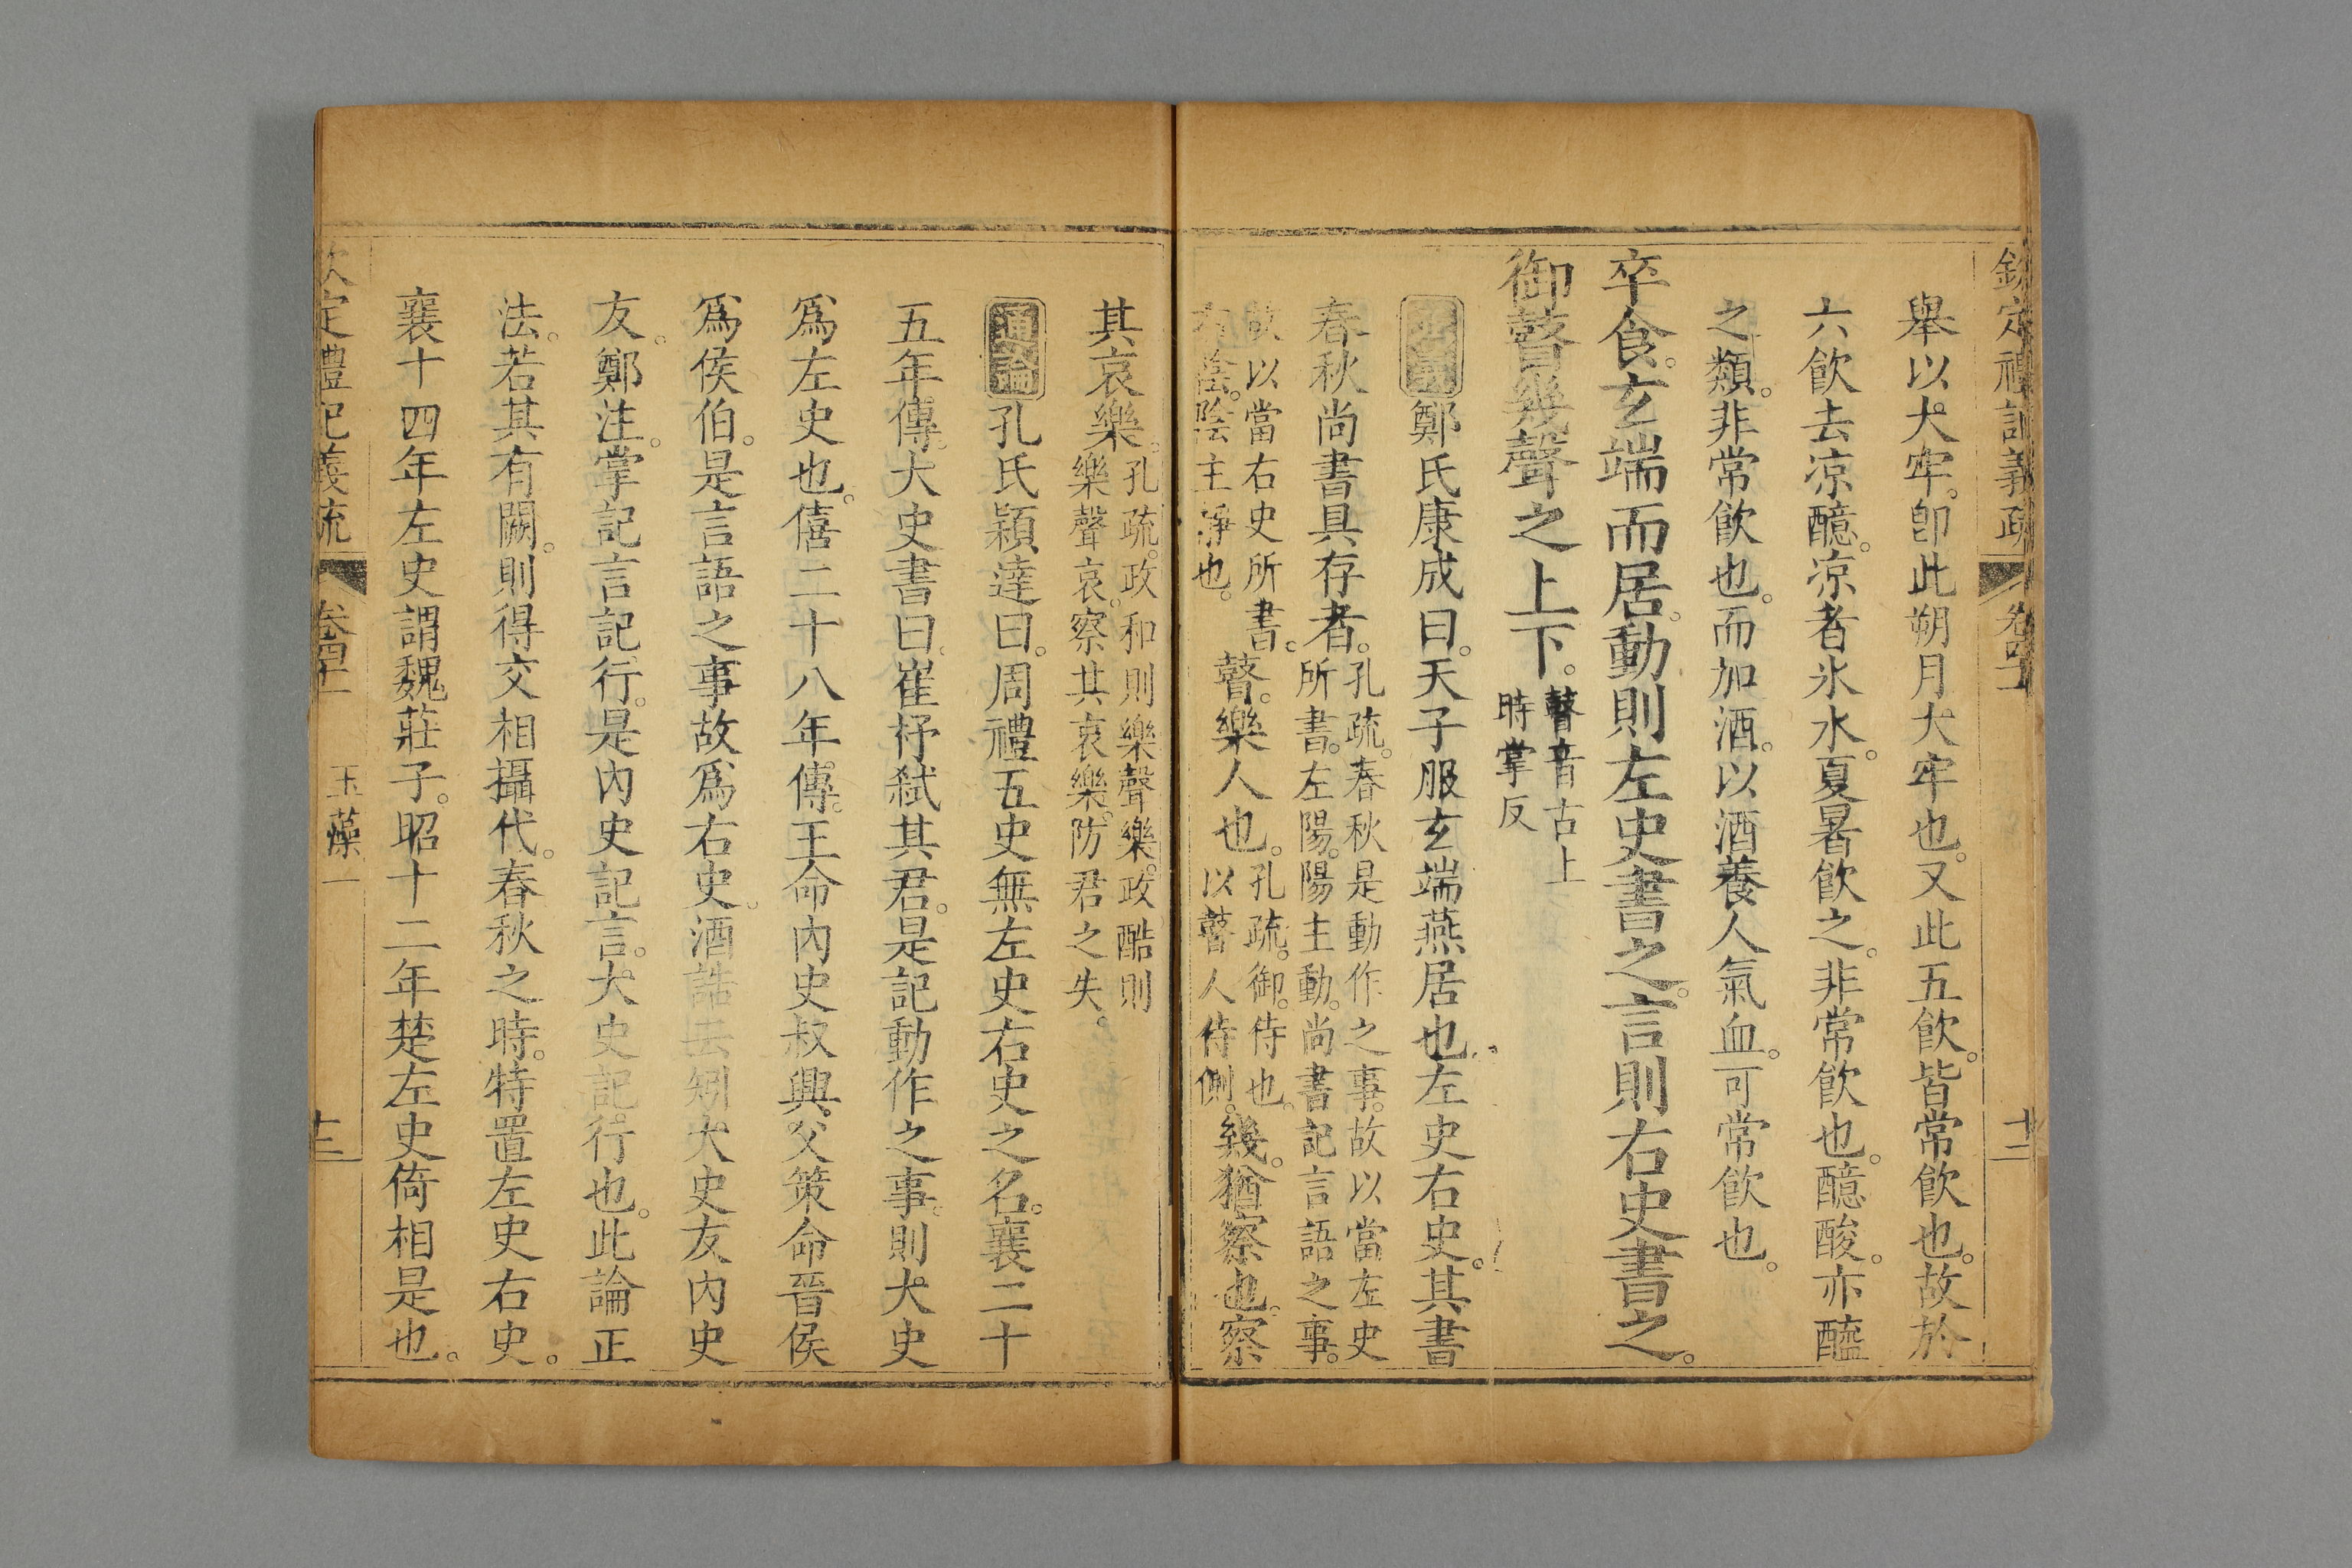 欽定禮記義疏 卷四十一 十二
舉以大牢。卽此朔月大牢也。又此五飮。皆常飮也。故於
六飮去凉醷。凉者氷水。夏暑飮之。非常飮也。醷酸。亦醯
之類。非常飮也。而加酒。以酒養人氣血。可常飮也。
卒食。玄端而居。動則左史書之。言則右史書之。
御瞽幾聲之上下。
瞽音古上
時掌反
鄭氏康成曰。天子服玄端燕居也。左史右史。其書
春秋尚書具存者。
孔疏。春秋是動作之事。故以當左史
所書。左陽。陽主動。尚書記言語之事。
故以當右史所書。
右陰。陰主靜也。
瞽。樂人也。
孔疏。御。侍也。
以瞽人侍側。
幾。猶察也。察
其哀樂。
孔疏。政和則樂聲樂。政酷則
樂聲哀。察其哀樂。防君之失。
通論 孔氏穎達曰。周禮五史無左史右史之名。襄二十
五年傳。大史書曰。崔杼弑其君。是記動作之事。則大史
爲左史也。僖二十八年傳。王命內史叔興。父策命晉侯
爲侯伯。是言語之事。故爲右史。酒誥云矧大史友內史
友。鄭注。掌記言記行。是內史記言。大史記行也。此論正
法。若其有闕。則得交相攝代。春秋之時。特置左史右史。
襄十四年左史謂魏莊子。昭十二年楚左史倚相是也。
欽定禮記義疏 卷四十一 玉藻一 十三